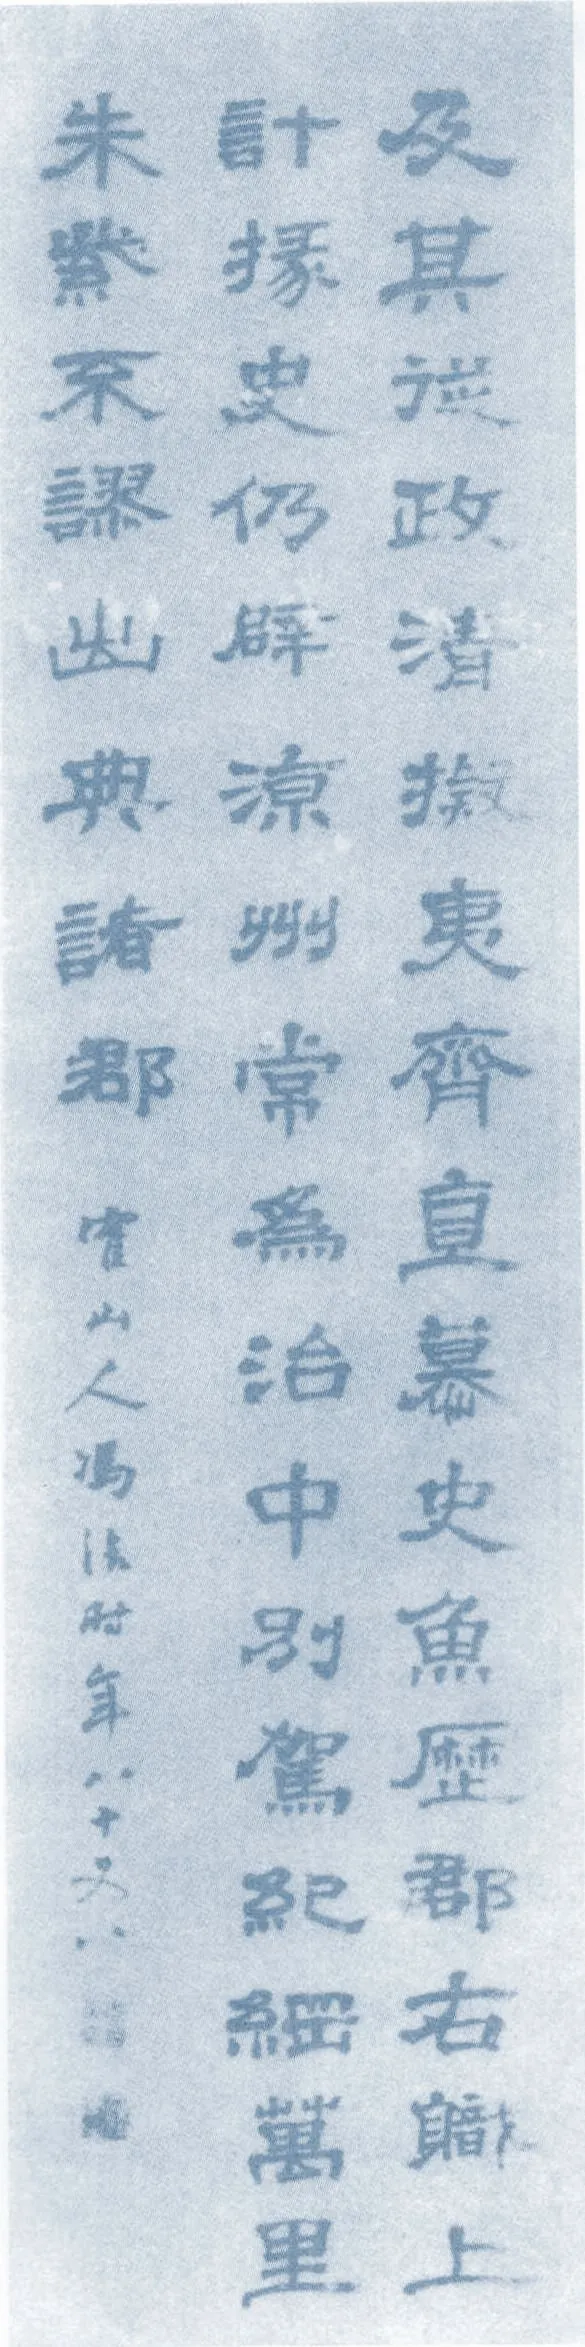 及其從政清擬夷齊直慕史魚歷郡右職上
計掾史仍辟涼州常為治中別駕紀綱萬里
朱紫不謬出典諸郡
霍山人馮法时年八十又八